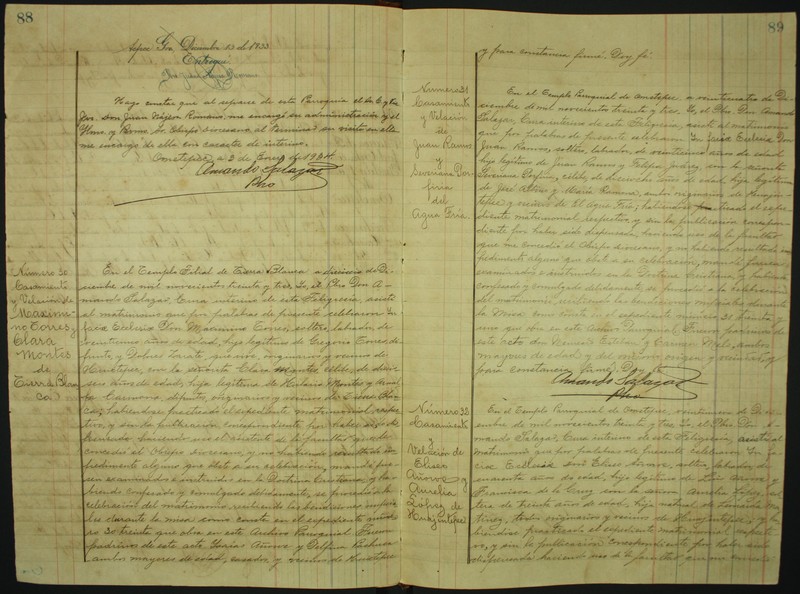 88
Diciembre 13 de 1933
Entregue
Hago constar que al separse de esta Parroquia el Sr. Cura
Don Juan Nájera Romano, me encargó su administración y el
Ilmo. y Rvmo. Sr. Obispo Diocesano al terminar su visita en ella
me encargó de ella con caracter de interino.
Ometepec a 2 de Enero de 1934.
Amando Salazar
Pbo
Número 30
Casamiento
y Velación de
Maximi-
no Torres y
Clara
Montes
de
Tierra Blan
ca
En el Templo Filial de Tierra Blanca a dieciseis de Di-
ciembre de mil novecientos treinta y tres, Yo, el Pbo Don A-
mando Salazar, Cura interino de esta Feligresía, asistí
al matrimonio que por palabras de presente celebraron In
facie Eclesie Don Maximino Torres, soltero, labrador, de
veintiuno años de edad, hijo legítimo de Gregorio Torres di-
funto, y Dolores Zarate, que vive, originarios y vecinos de
con la señorita Clara Montes, célibe, de dieci-
seis años de edad, hija legítima de Hilario Montes y
Carmona, difunta, originarios y vecinos de Tierra Blan-
ca; habiéndose practicado el expediente matrimonial respec-
tivo, y sin la publicación correspondiente por haber sido dis-
pensada haciendo uso de la facultad que me
concedió el Obispo diocesano, y no habiendo resultado im-
pedimento alguno que obste a su celebración, mandé fue-
sen examinados e instruidos en la Doctrina Cristiana y ha-
biendo confesado y comulgado debidamente, se procedió a la
celebración del matrimonio, recibiendo las bendiciones nupcia-
les durante la misa como consta en el expediente núme-
ro 30 treinta que obra en este Archivo Parroquial. Fueron
padrinos de este acto Isaías Añorve y Delfina Pacheco
ambos mayores de edad, casados y vecinos de Ometepec
89
y para constancia firmé. Doy fé
Número 31
Casamiento
y Velación
de
Juan Ramos
y
Severiana Por
firia
del
Agua Fría.
En el Templo Parroquial de Ometepec, a veinticuatro de Di-
ciembre de mil novecientos treinta y tres, Yo, el Pbo Don Amando
Salazar, Cura interino de esta Feligresía, asistí al matrimonio
que por palabras de presente celebraron In facie Eclesia Don
Juan Ramos, soltero, labrador, de veintiun años de edad
hijo legítimo de Juan Ramos y Felipa Juárez, con la señorita
Severiana Porfirio, célibe, de dieciocho años de edad, hija legítima
de José y María ambos originarios de
y vecinos de El Agua Fría; habiéndose practicado el expe-
diente matrimonial respectivo y sin la publicación correspon-
diente por haber sido dispensada, haciendo uso de la facultad
que me concedió el Obispo diocesano, y no habiendo resultado im-
pedimento alguno que obste a su celebración, mandé fuesen
examinados e instruidos en la Doctrina Cristiana, y habiendo
confesado y comulgado debidamente, se procedió a la celebración
del matrimonio, recibiendo las bendiciones nupciales durante
la Misa como consta en el expediente número 31 treinta y
uno que obra en este Archivo Parroquial. Fueron padrinos de
este acto Don y Carmen Melo, ambos
mayores de edad y del mismo origen y vecindad y
para constancia firmé. Doy fé
Amando Salazar
Pbo
Número 32
Casamiento
y
Velación de
Eliseo
Añorve y
Amelia
López de
Huixtepec
En el Templo Parroquial de Ometepec, a veinticinco de Di-
ciembre de mil novecientos treinta y tres, Yo, el Pbo Don A-
mando Salazar, Cura interino de esta Feligresía, asistí al
matrimonio que por palabras de presente celebraron In fa-
cie Eclesiæ Don Eliseo Añorve, soltero, labrador, de
cincuenta años de edad, hijo legítimo de Luis Añorve y
Francisca de la Cruz con la señora Amelia López, sol-
tera de treinta años de edad, hija natural de
todos originarios y vecinos de y ha-
biéndose practicado el expediente matrimonial respecti-
vo, y sin la publicación correspondiente por haber sido
dispensada haciendo uso de la facultad que me concedió